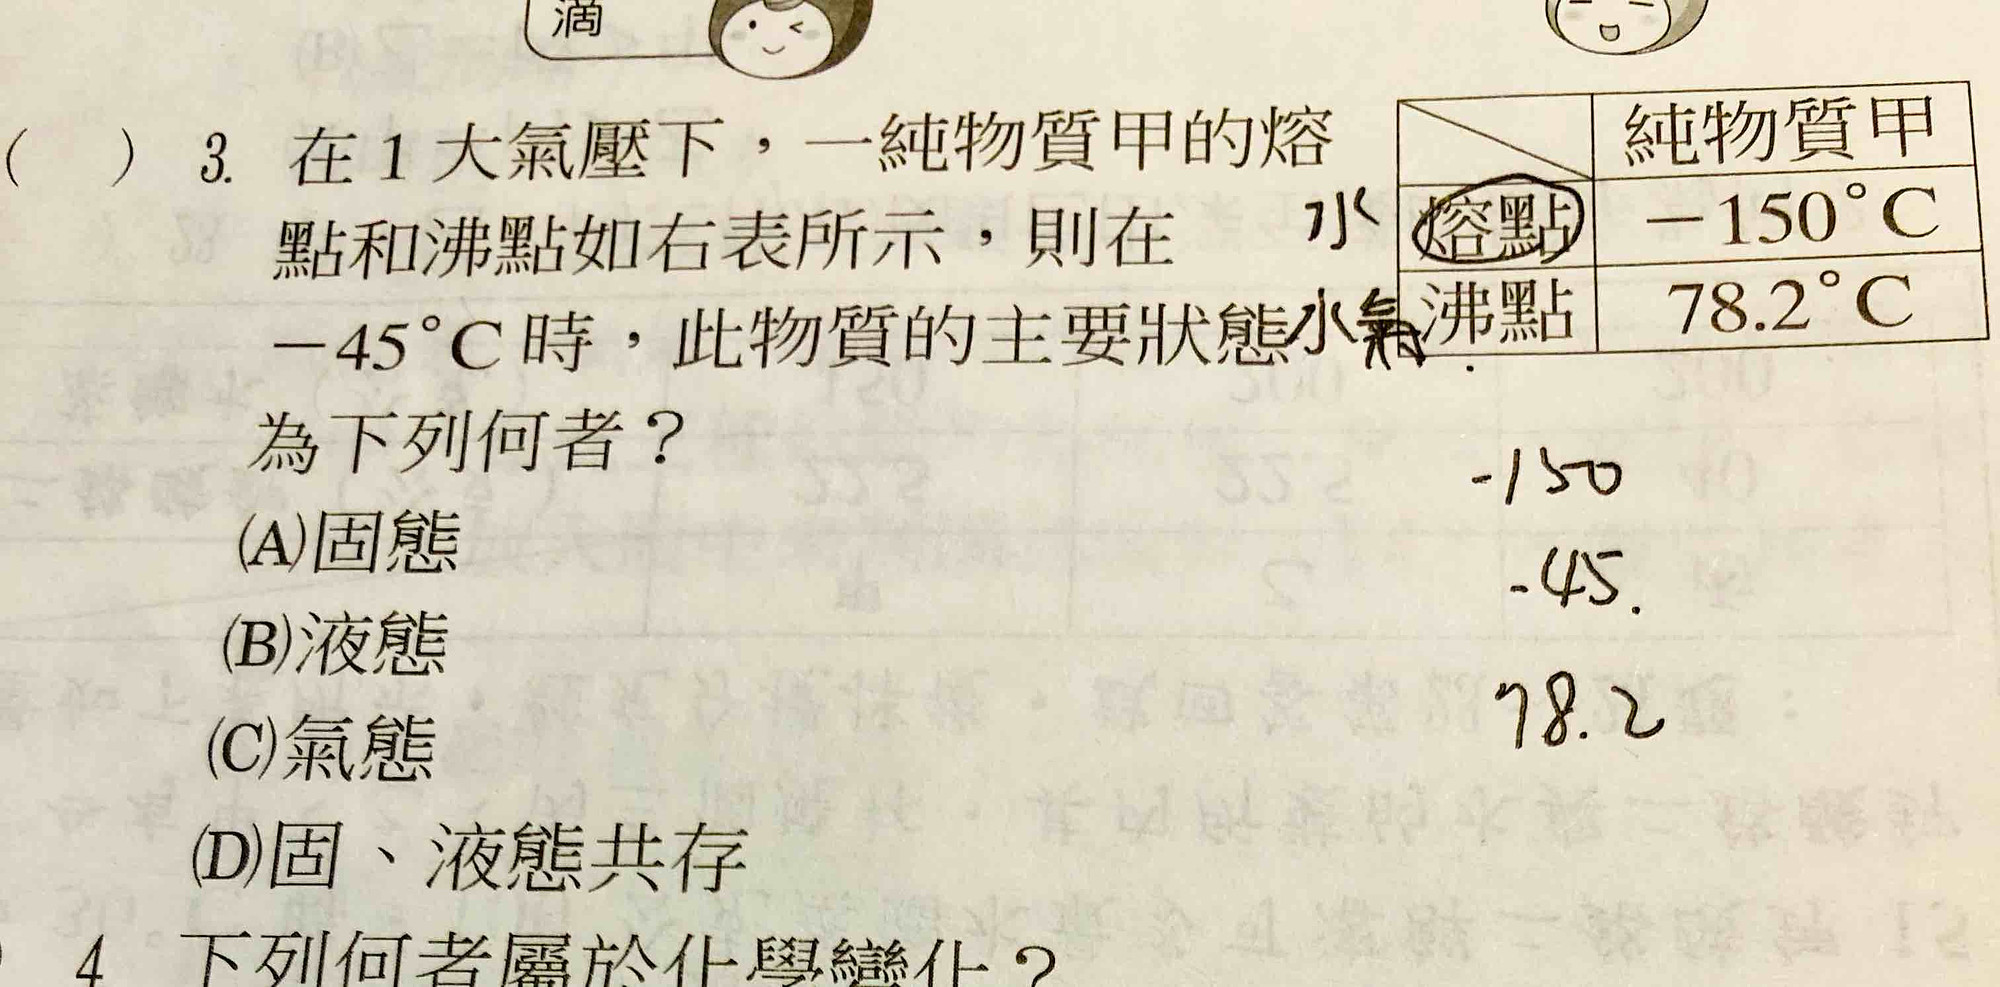 滴
( ) 3. 在1大氣壓下，一純物質甲的熔
點和沸點如右表所示，則在
－45°C時，此物質的主要狀態
為下列何者？
純物質甲
水 熔點 －150°C
水氣 沸點 78.2°C
-150
-45.
78.2
(A)固態
(B)液態
(C)氣態
(D)固、液態共存
4 下列何者屬於化學變化？